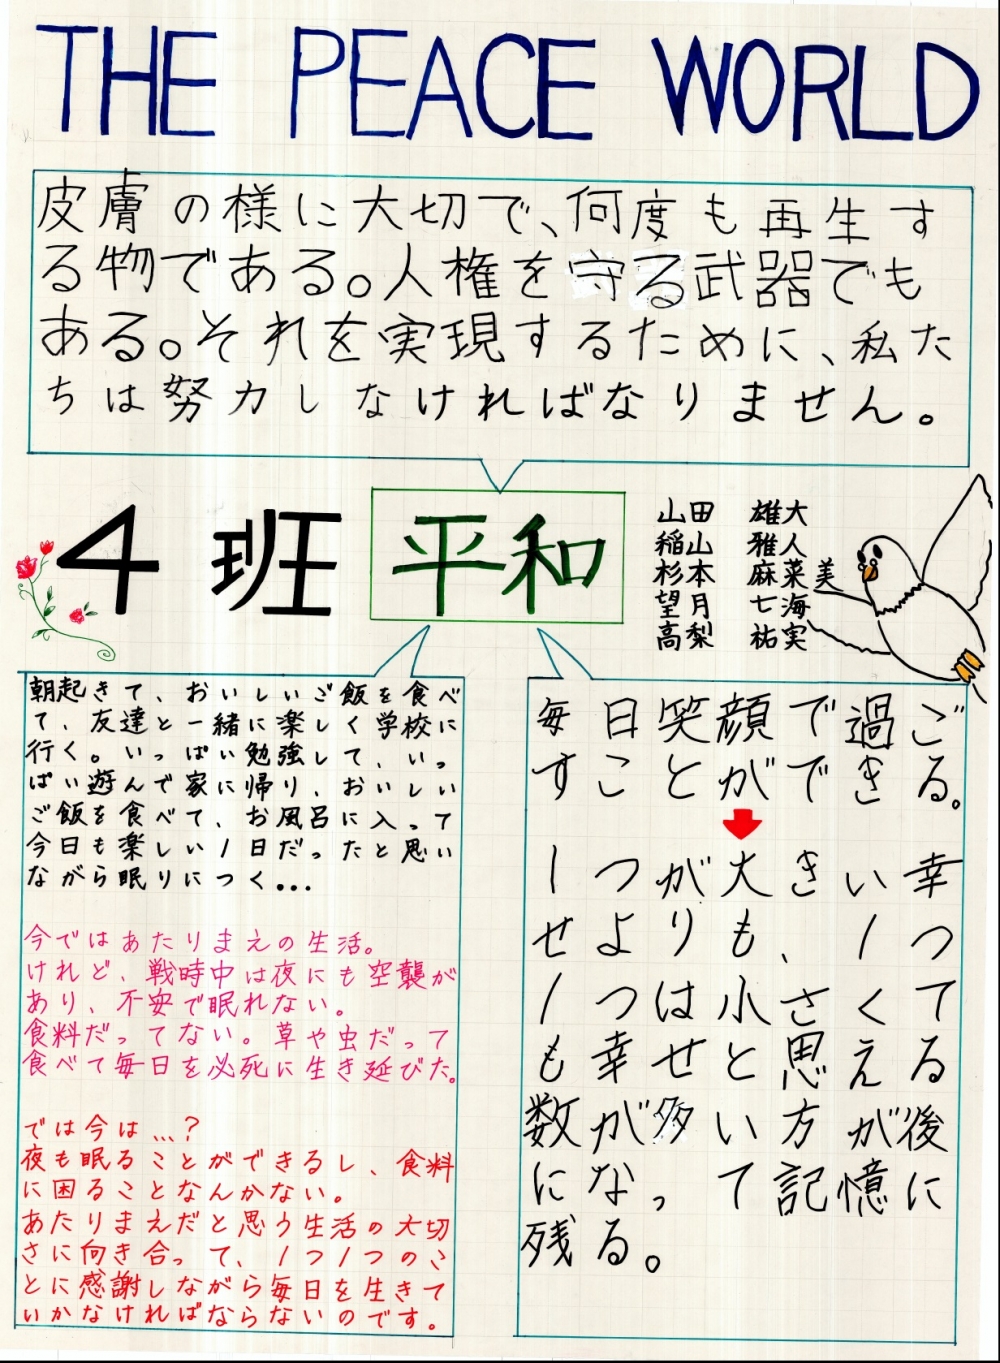 THE PEACE WORLD
皮膚の様に大切で、何度も再生す
る物である。人権を守る武器でも
ある。それを実現するために、私た
ちは努力しなければなりません。
4班 平和
山田 雄大
稲山 雅人
杉本 麻菜美
望月 七海
高梨 祐実
朝起きて、おいしいご飯を食べ
て、友達と一緒に楽しく学校に
行く。いっぱい勉強して、いっ
ぱい遊んで家に帰り、おいしい
ご飯を食べて、お風呂に入って
今日も楽しい1日だったと思い
ながら眠りにつく...
今ではあたりまえの生活。
けれど、戦時中は夜にも空襲が
あり、不安で眠れない。
食料だってない。草や虫だって
食べて毎日を必死に生き延びた。
では今は...?
夜も眠ることができるし、食料
に困ることなんかない。
あたりまえだと思う生活の大切
さに向き合って、1つ1つのこ
とに感謝しながら毎日を生きて
いかなければならないのです。
毎日笑顔で過ご
すことができる。
1つが大きい幸
せよりも、1つ
1つは小さくて
も幸せと思える
数が多い方が後
になって記憶に
残る。